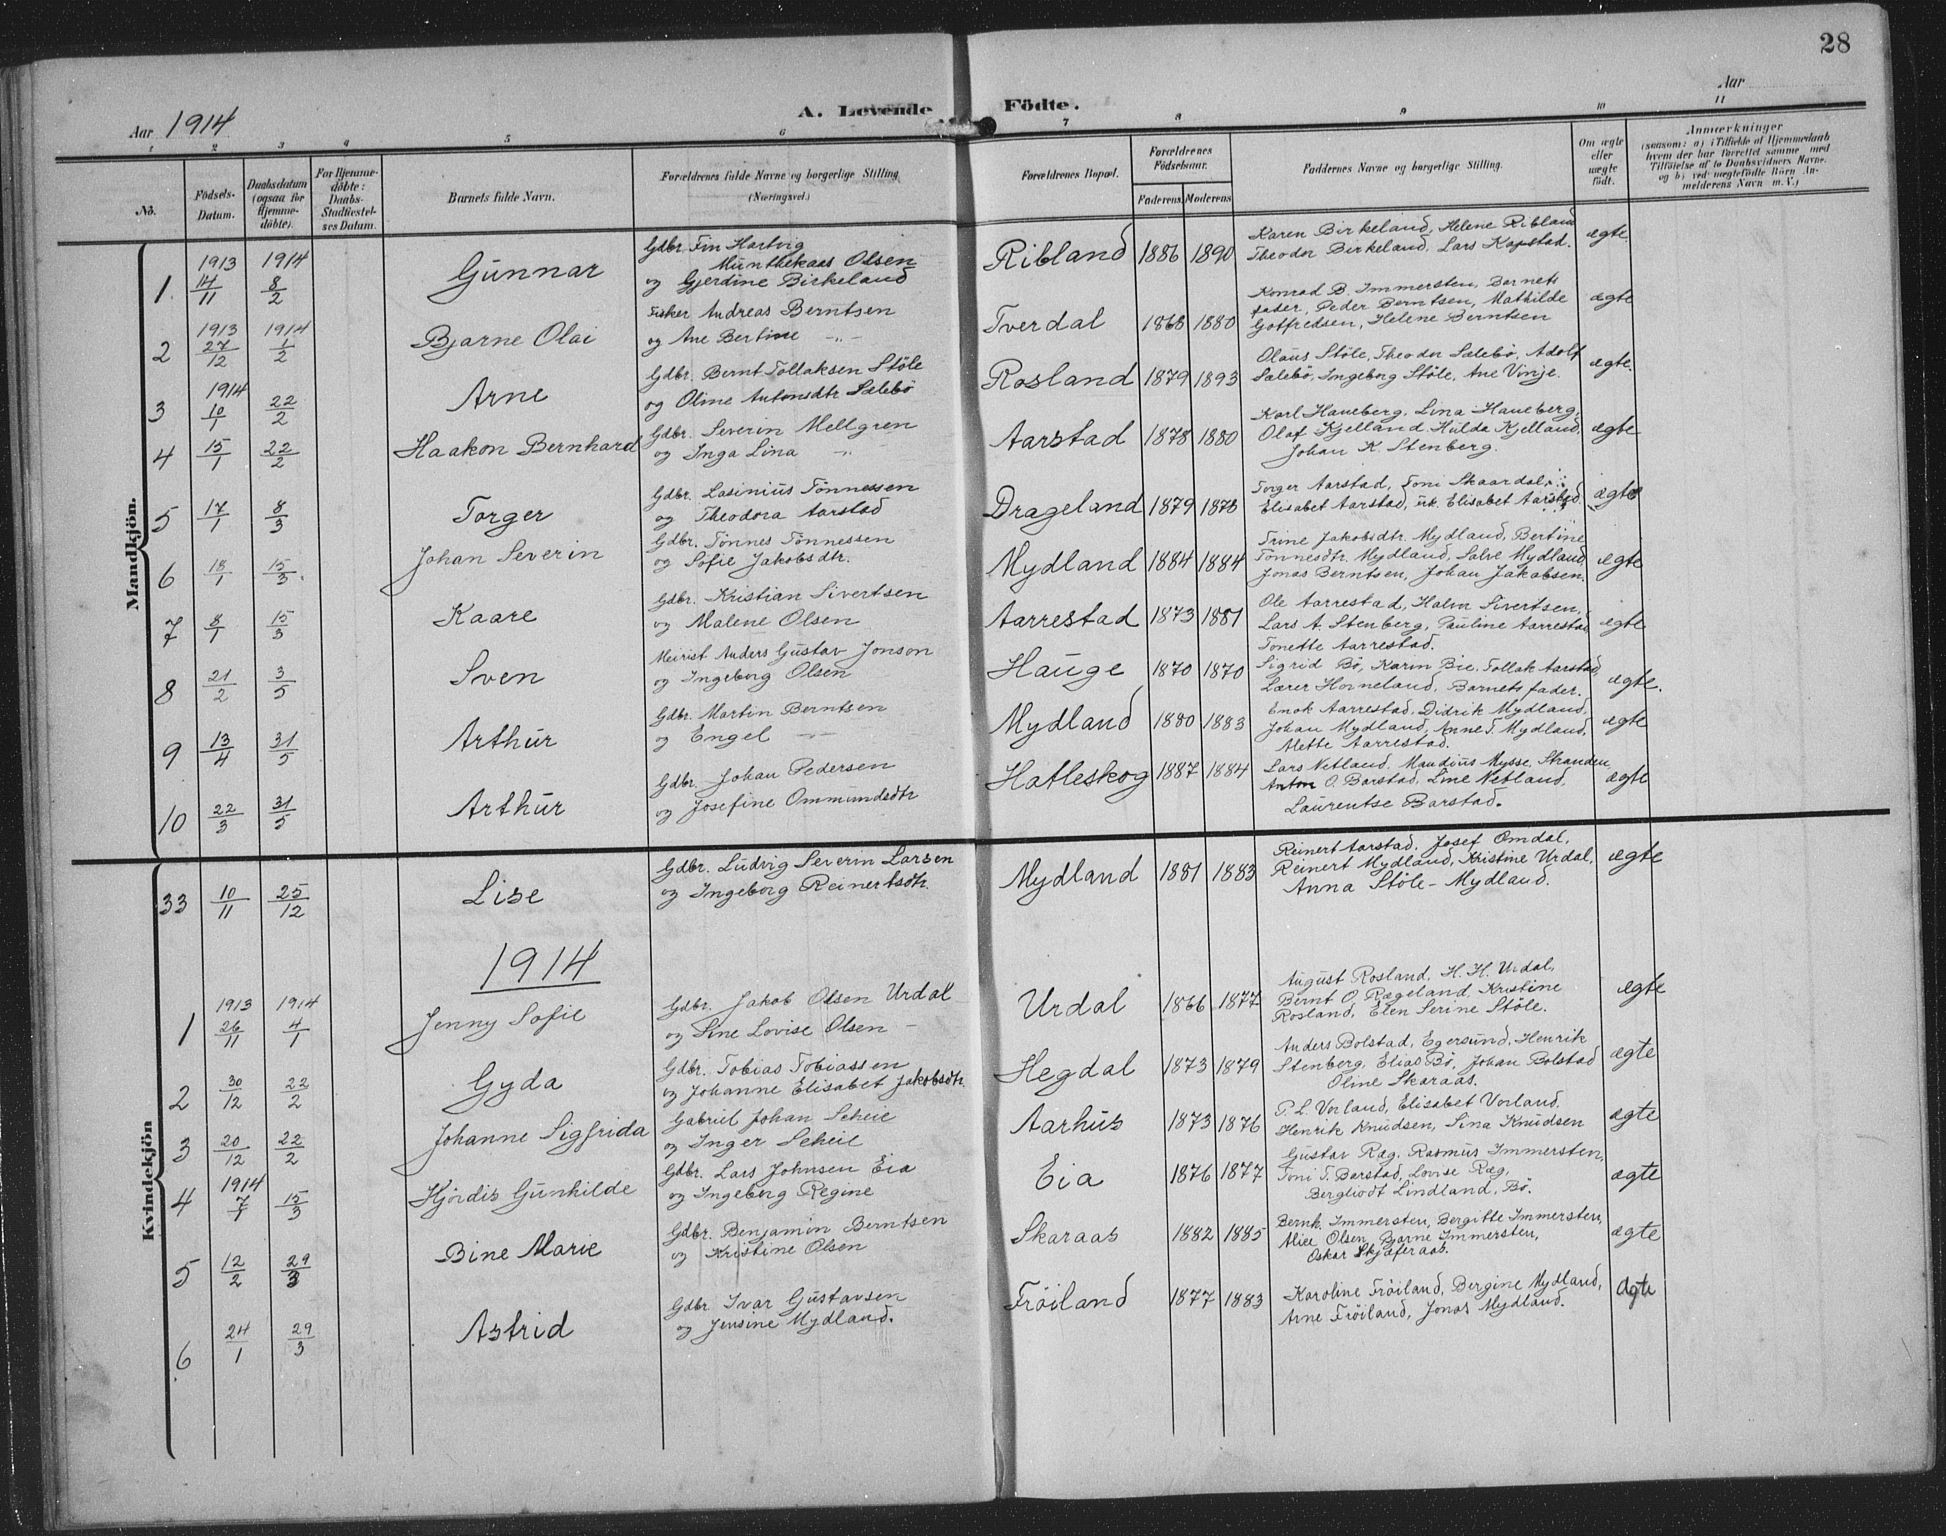 28
Aar 1914
A. Levende Födte.
Aar
1 2 3 4 5 6 7 8 9 10 11
No.
Födsels-Datum.
Daabsdatum (ogsaa for Hjemme-döbte).
For Hjemme-döbte: Daabs-Stadfæstel-ses Datum.
Barnets fulde Navn.
Forældrenes fulde Navne og borgerlige Stilling (Næringsvei.)
Forældrenes Bopæl.
Forældrenes Födselsaar.
Faderens. Moderens
Faddernes Navne og borgerlige Stilling.
Om ægte eller uægte födt.
Anmærkninger
(saasom: a) i Tilfælde af Hjemmedaab
hvem der har forrettet samme med
Tilföielse af to Daabsvidners Navne.
og b) ved uægtefödte Börn An-
melderens Navn m. V.)
Mandkjön.
1 1913 14/11 1914 8/2 Gunnar
Gdbr. Fin Hartvig
Munthekaas Olsen
og Gjerdine Birkeland
Ribland 1886 1890
Karen Birkeland, Helene Ribland
Theodor Birkeland, Lars Kapstad.
ægte.
2 1913 27/12 1914 1/2 Bjarne Olai
Fisker Andreas Berntsen
og Ane Bertine -"-
Tverdal 1868 1880
Konrad B. Immersten, Barnets
fader, Peder Berntsen, Mathilde
Gotfredsen, Helene Berntsen
ægte
3 1914 10/1 22/2 Arne
Gdbr. Bernt Tollaksen Stöle
og Oline Antonsdtr Sælebö
Rosland 1879 1893
Olaus Stöle, Theodor Sælebö, Adolf
Sælebö, Ingeborg Stöle, Ane Vinje.
ægte.
4 15/1 22/2 Haakon Bernhard
Gdbr. Severin Mellgren
og Inga Lina -"-
Aarstad 1878 1880
Karl Haneberg, Lina Haneberg,
Olaf Kjelland, Hulda Kjelland,
Johan K. Stenberg.
ægte
5 17/1 8/3 Torger
Gdbr. Lasinius Tönnessen
og Theodora Aarstad
Drageland 1879 1878
Torger Aarstad, Toni Skaardal,
Elisabet Aarstad, Elisabet Aarstad.
ægte
6 18/1 15/3. Johan Severin
Gdbr. Tönnes Tönnessen
og Sofie Jakobsdtr.
Mydland 1884 1884
Trine Jakobsdtr. Mydland, Bertine
Tönnesdtr. Mydland, Salve Mydland,
Jonas Berntsen, Johan Jakobsen.
ægte
7 8/1 15/3 Kaare
Gdbr. Kristian Sivertsen
og Malene Olsen
Aarrestad 1873 1881
Ole Aarrestad, Halvor Sivertsen,
Lars A. Stenberg, Pauline Aarrestad
Tonette Aarrestad.
ægte
8 21/2 3/5 Sven
Meirist Anders Gustav Jonson
og Ingeborg Olsen
Hauge 1870 1870
Sigrid Bö, Karen Bie, Tollak Aarstad,
Lærer Horneland, Barnets fader.
ægte.
9 13/4 31/5 Arthur
Gdbr. Martin Berntsen
og Engel -"-
Mydland 1880 1883
Enok Aarrestad, Didrik Mydland,
Johan Mydland, Anne T. Mydland,
Mette Aarrestad.
ægte
10 22/3 31/5 Arthur
Gdbr. Johan Pedersen
og Josefine Ommundsdtr
Hatleskog 1887 1884
Lars Netland, Maudius Mysse, Stranden,
Anton O. Barstad, Line Netland,
Laurentse Barstad.
ægte
Kvindekjön
33 10/11 25/12 Lise
Gdbr. Ludvig Severin Larsen
og Ingeborg Reinertsdtr.
Mydland 1881 1883
Reinert Aarstad, Josef Omdal,
Reinert Mydland, Kristine Urdal,
Anna Stöle-Mydland.
ægte
1914
1 1913 26/11 1914 4/1 Jenny Sofie
Gdbr. Jakob Olsen Urdal
og Sine Lovise Olsen -
Urdal 1866 1877
August Rosland, H. H. Urdal,
Bernt O. Rægeland, Kristine
Rosland, Elen Serine Stöle.
ægte
2 30/12 22/2 Gyda
Gdbr. Tobias Tobiassen
og Johanne Elisabet Jakobsdtr.
Hegdal 1873 1879
Anders Bolstad, Egersund, Henrik
Stenberg, Elias Bö, Johan Bolstad
Oline Skaraas.
ægte
3 20/12 22/2 Johanne Sigfrida
Gabriel Johan Scheie
og Inger Scheie
Aarhus 1873 1876
P. L. Vorland, Elisabet Vorland.
Henrik Knudsen, Sina Knudsen
ægte
4 1914 7/1 15/3 Hjördis Gunhilde
Gdbr. Lars Johnsen Eia
og Ingeborg Regine
Eia 1876 1877
Gustav Ræg, Rasmus Immersten,
Toni T. Barstad, Lovise Ræg,
Bergliodt Lindland, Bö.
ægte
5 12/2 29/3 Bine Marie
Gdbr. Benjamin Berntsen
og Kristine Olsen
Skaraas 1882 1885
Bernh. Immersten, Bergitte Immersten,
Alice Olsen, Bjarne Immersten,
Oskar Skjæferaas.
ægte
6 24/1 29/3 Astrid
Gdbr. Ivar Gustavsen
og Jensine Mydland.
Fröiland 1877 1883
Karoline Fröiland, Bergine Mydland,
Arne Fröiland, Jonas Mydland.
ægte